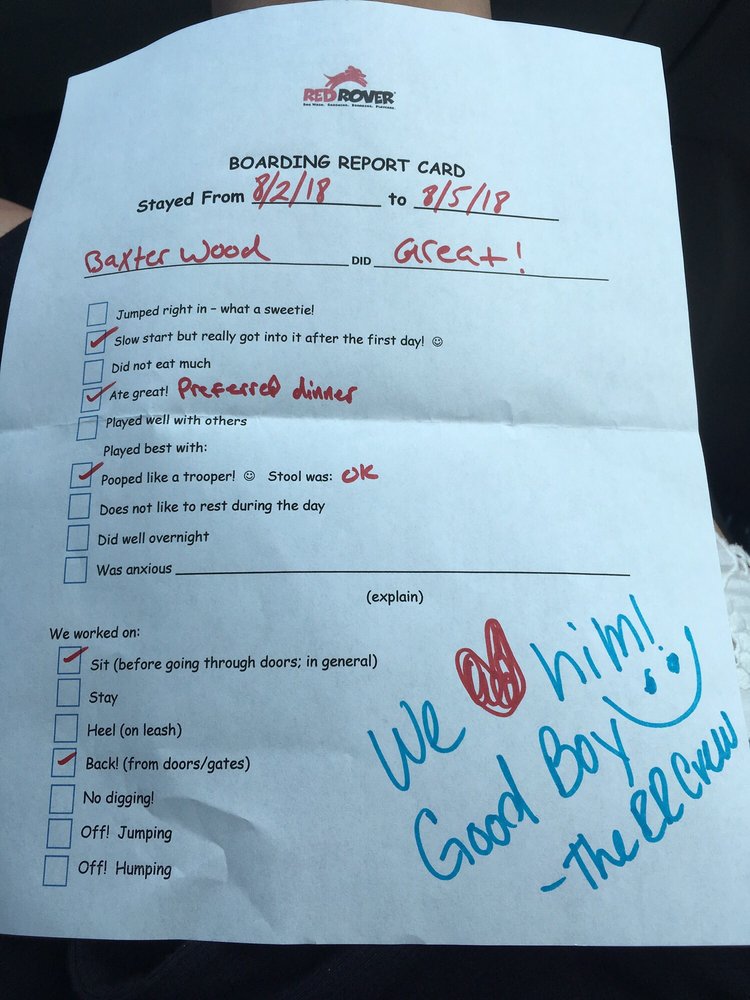 REDROVER
BOARDING REPORT CARD
Stayed From 8/2/18 to 8/5/18
Baxter Wood DID Great!
Jumped right in – what a sweetie!
Slow start but really got into it after the first day! ☺
Did not eat much
Ate great! Preferred dinner
Played well with others
Played best with:
Pooped like a trooper! ☺ Stool was: OK
Does not like to rest during the day
Did well overnight
Was anxious
(explain)
We worked on:
Sit (before going through doors; in general)
Stay
Heel (on leash)
Back! (from doors/gates)
No digging!
Off! Jumping
Off! Humping
We him!
Good Boy
-The RR Crew